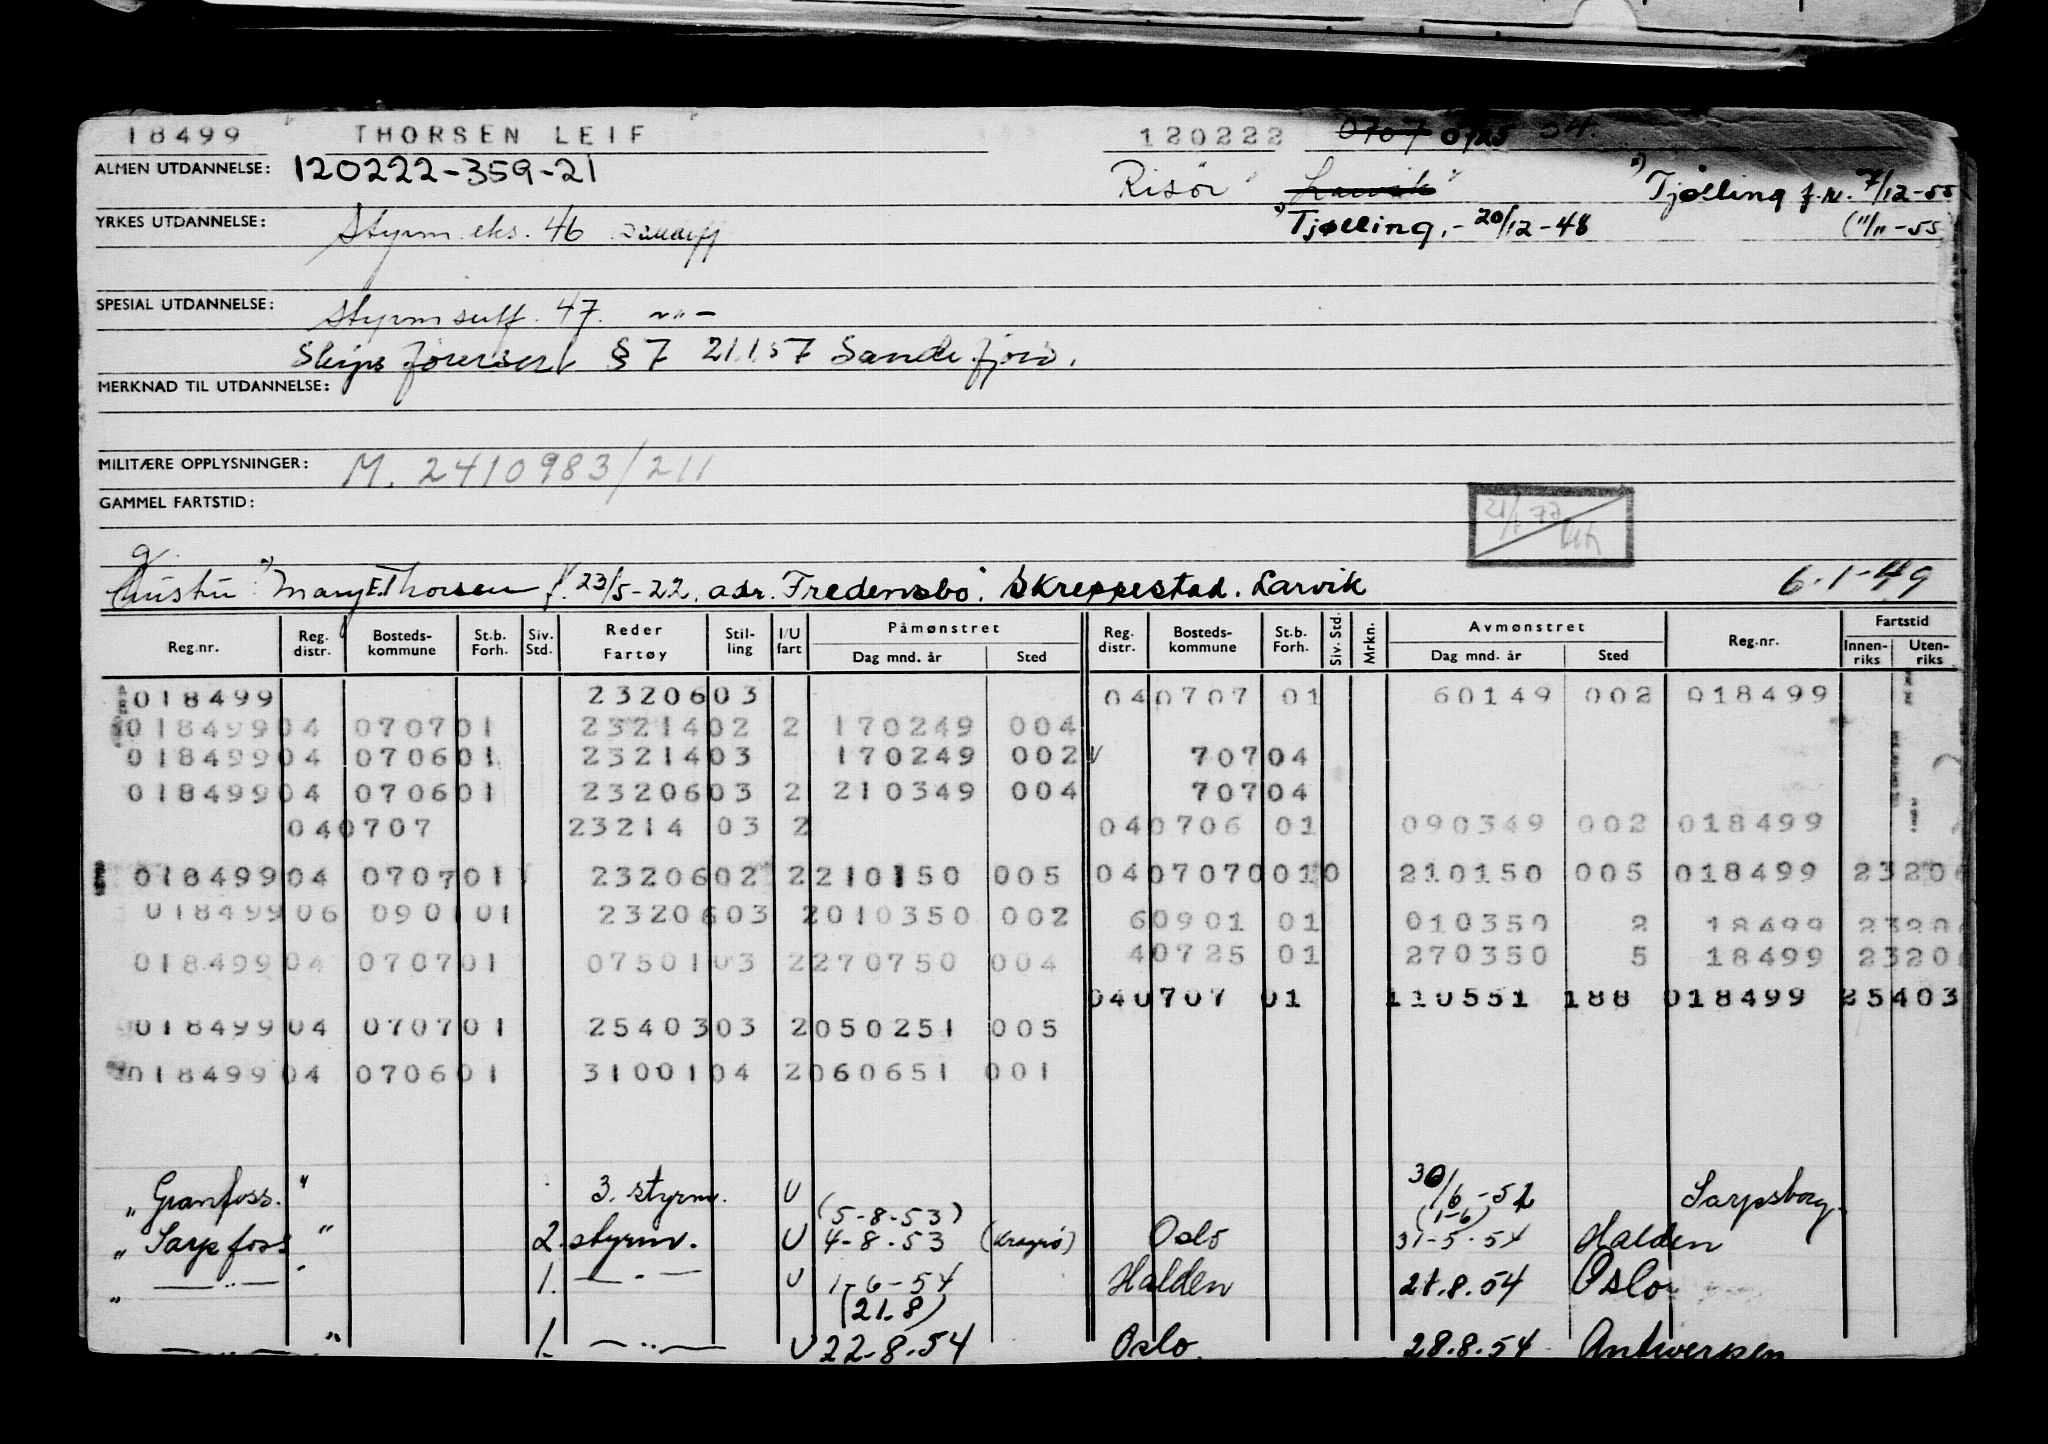 18499 THORSEN LEIF 120222 0707 0725 04.
ALMEN UTDANNELSE: 120222-359-21 Risör Larvik Tjølling f.n. 7/12-55
YRKES UTDANNELSE: Styrm. eks. 46 Tjølling.- 20/12-48 (11/11-55
SPESIAL UTDANNELSE: Styrm sert. 47. -"-
Skips førersert § 7 21157 Sandefjord.
MERKNAD TIL UTDANNELSE:
MILITÆRE OPPLYSNINGER: M. 2410983/211
GAMMEL FARTSTID:
Hustru: Mary E. Thorsen f. 23/5-22, adr. Fredensbo. Skreppestad. Larvik 6.1-49
Reg.nr. Reg. distr. Bosteds-kommune St.b. Forh. Siv. Std. Reder Fartøy Stil-ling I/U fart Påmønstret Dag mnd. år Sted Reg. distr. Bosteds-kommune St.b. Forh. Siv. Std. Mrkn. Avmønstret Dag mnd. år Sted Reg.nr. Fartstid Innen-riks Uten-riks
018499 2320603 040707 01 60149 002 018499
01849904 070701 2321402 2 170249 004
01849904 070601 2321403 170249 002 70704
01849904 070601 2320603 2 210349 004 70704
040707 23214 03 2 040706 01 090349 002 018499
01849904 070701 2320602 2210150 005 0407070010 210150 005 018499 2320
01849906 090101 2320603 2010350 002 60901 01 010350 2 18499 2320
01849904 070701 0750103 2270750 004 40725 01 270350 5 18499 2320
040707 01 110551 188 018499 25403
01849904 070701 2540303 2050251 005
01849904 070601 3100104 2060651 001
„ Granfoss. " 3. styrm. U 30/6-52 Sarpsborg.
(5-8-53) (1-6)
„ Sarpfoss " 2. styrm. U 4-8-53 (Kragrø) Oslo 31-5-54 Halden
„ —"— " 1. —"— U 1-6-54 Halden 21.8.54 Oslo
(21.8)
—"— " 1. —"— U 22-8.54 Oslo. 28.8.54 Antwerpen